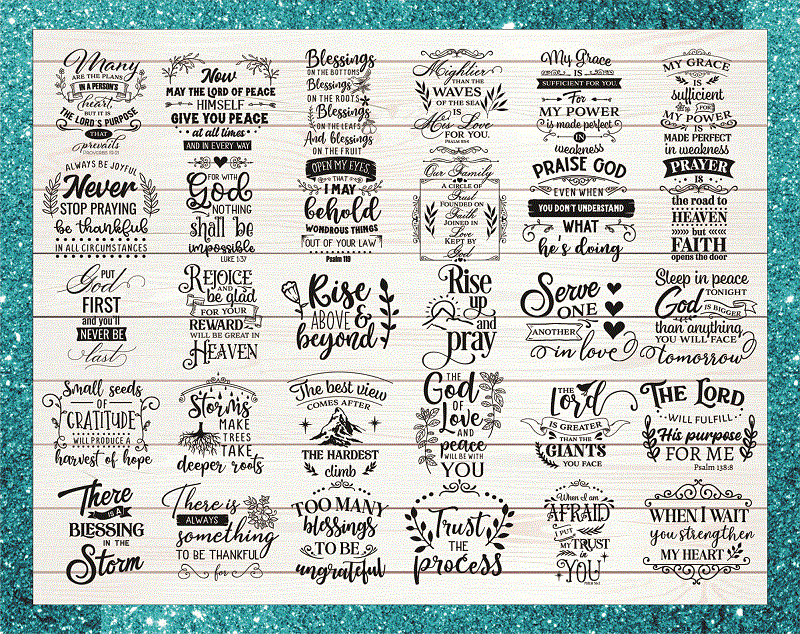 Many
ARE THE PLANS
IN A PERSON'S
heart,
BUT IT IS
THE LORD'S PURPOSE
THAT
prevails
PROVERBS 19:21
Now
MAY THE LORD OF PEACE
HIMSELF
GIVE YOU PEACE
at all times
AND IN EVERY WAY
Blessings
ON THE BOTTOMS
Blessings
ON THE ROOTS
Blessings
ON THE LEAFS
And blessings
ON THE FRUIT
Mightier
THAN THE
WAVES
OF THE SEA
IS
His Love
FOR YOU.
PSALM 93:4
My Grace
IS
SUFFICIENT FOR YOU,
For
MY POWER
is made perfect
IN
weakness
MY GRACE
IS
sufficient
FOR
MY POWER
IS
MADE PERFECT
in weakness
ALWAYS BE JOYFUL
Never
STOP PRAYING
be thankful
IN ALL CIRCUMSTANCES
FOR WITH
God
NOTHING
shall be
impossible
LUKE 1:37
OPEN MY EYES
THAT
I MAY
behold
WONDROUS THINGS
OUT OF YOUR LAW
Psalm 119
Our Family
A CIRCLE OF
Trust
FOUNDED ON
Faith
JOINED IN
Love
KEPT BY
God
PRAISE GOD
EVEN WHEN
YOU DON'T UNDERSTAND
WHAT
he's doing
PRAYER
IS
the road to
HEAVEN
but
FAITH
opens the door
PUT
God
FIRST
and you'll
NEVER BE
last
REJOICE
AND
be glad
FOR YOUR
REWARD
WILL BE GREAT IN
HEAVEN
Rise
ABOVE &
beyond
Rise
up
and
pray
Serve
ONE
ANOTHER
in love
Sleep in peace
TONIGHT
God
IS BIGGER
than anything
YOU WILL FACE
tomorrow
Small seeds
OF
GRATITUDE
WILL PRODUCE A
harvest of hope
Storms
MAKE
TREES
TAKE
deeper roots
The best view
COMES AFTER
THE HARDEST
climb
THE
God
of
Love
AND
peace
WILL BE WITH
YOU
THE
Lord
IS GREATER
THAN THE
GIANTS
YOU FACE
THE LORD
WILL FULFILL
His purpose
FOR ME
Psalm 138:8
There
IS A
BLESSING
IN THE
Storm
There is
ALWAYS
something
TO BE THANKFUL
for
TOO MANY
blessings
TO BE
ungrateful
Trust
THE
process
When I am
AFRAID
I PUT
MY TRUST
in
YOU
WHEN I WAIT
you strengthen
MY HEART